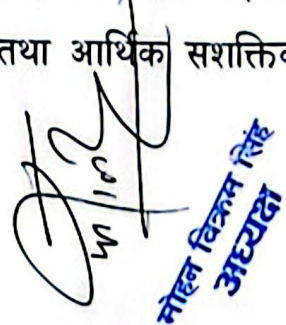 तथा आर्थिक सशक्ति
मोहन विक्रम सिंह
अध्यक्ष